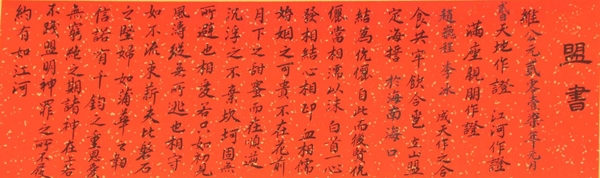 盟書
維公元貳零壹柒年元月
天地作證 江河作證
滿座親朋作證
趙燕 李冰 成天作之合
食共牢飲合卺 立山盟
定海誓 於海南海口
結為伉儷自此而後賢伉
儷當相濡以沫白首一心
發相結心相印血相儒
婚姻之可貴不在花前
月下之甜蜜而在順逆
沉浮之不棄坎坷困無
所避也相愛若只如初見
風濤縱無所逃也相守
如不流束薪夫比磐石
之堅婦如蒲葦之韌
信諾有千鈞之重恩愛
無窮絕之期諸神在上若
不踐盟明神罪之所不
約有如江河